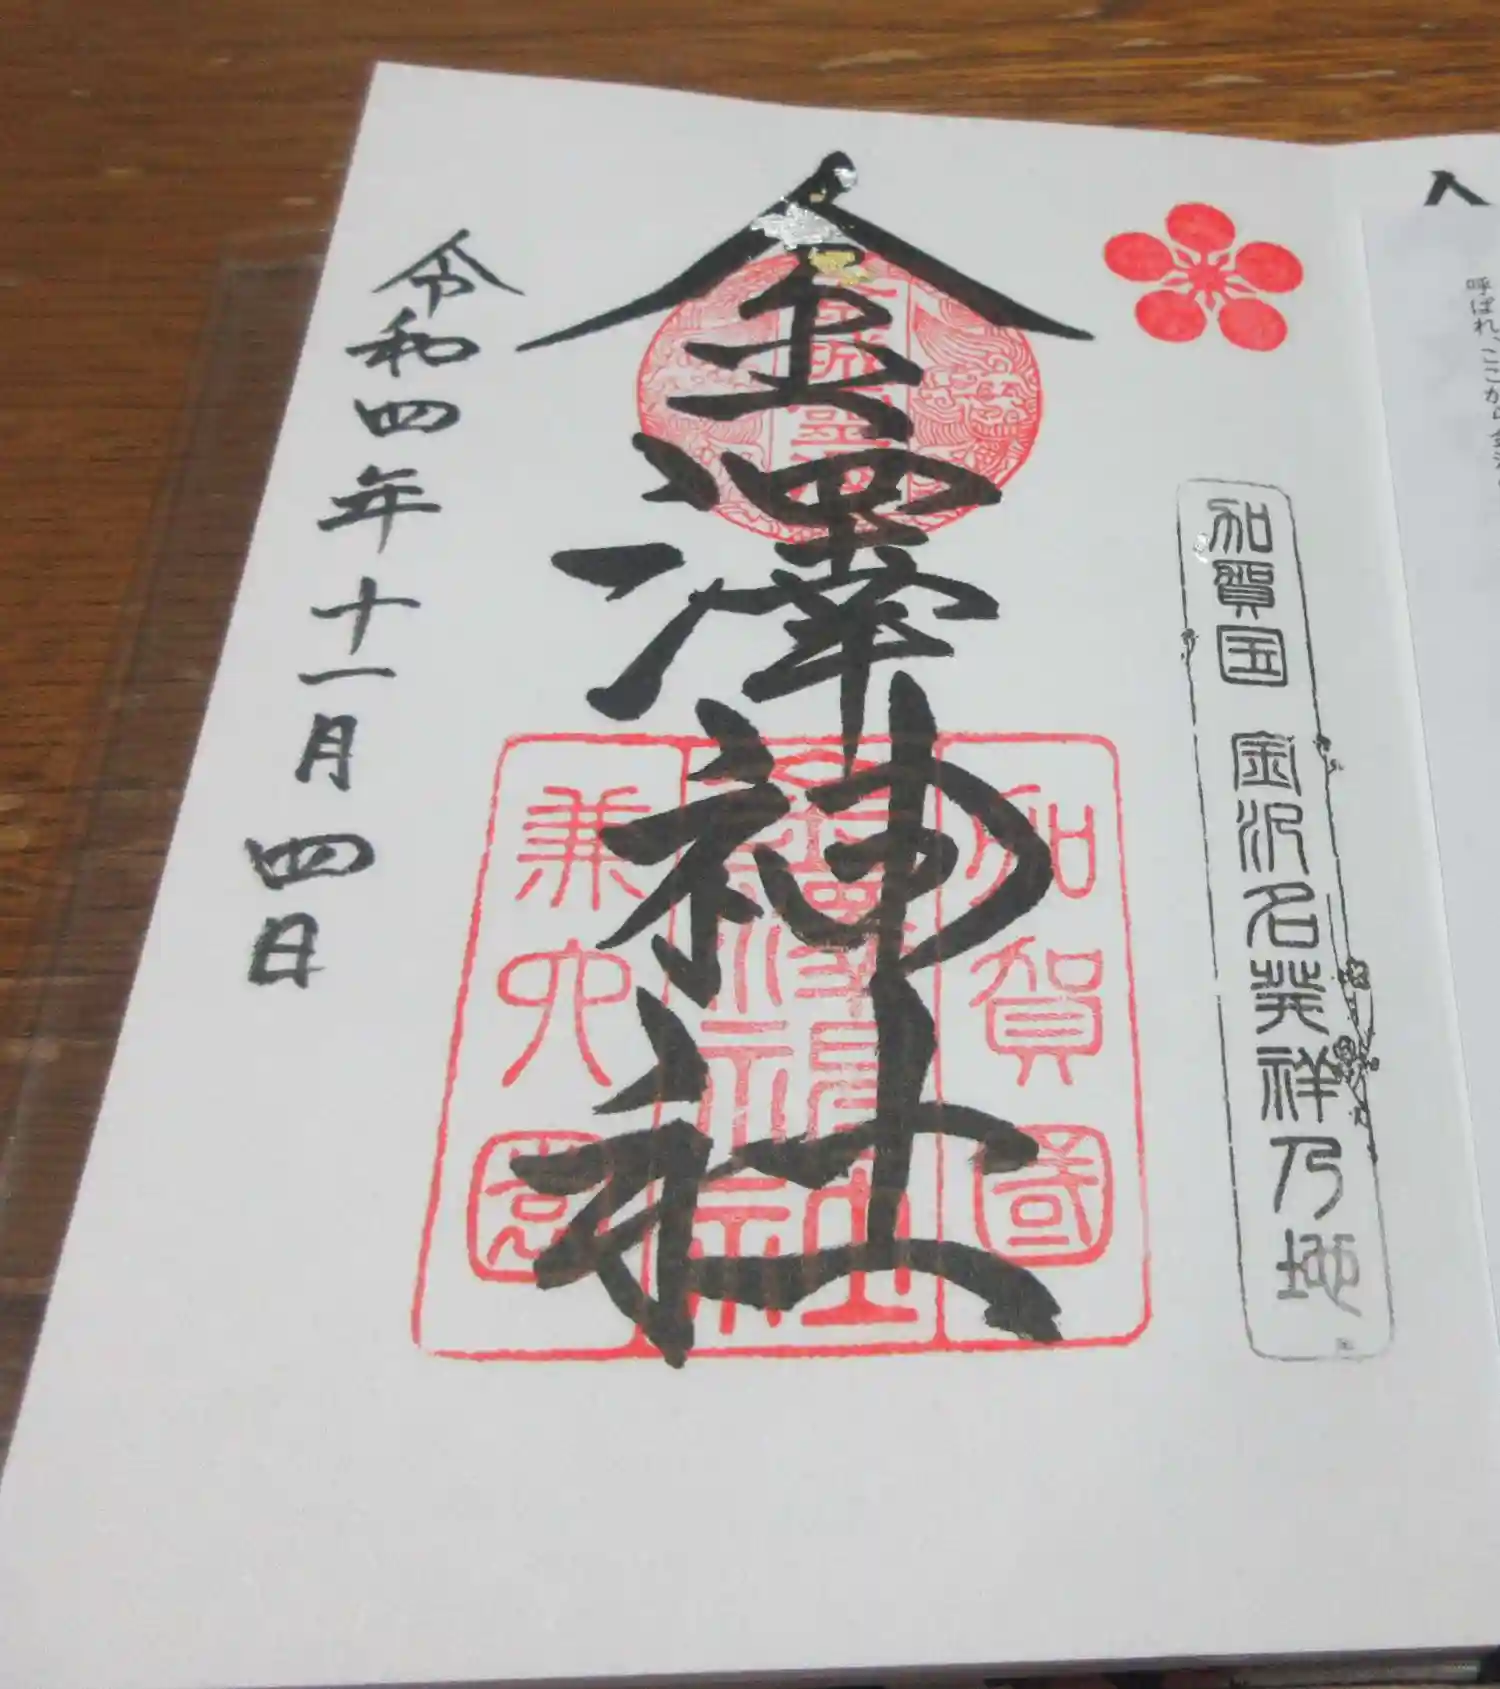 呼ばれ、ここから金沢
加賀国 金沢名発祥乃地
金澤神社
加賀國
金澤神社
兼六園
令和四年十一月四日